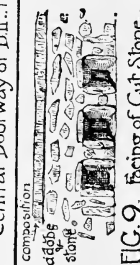 Central Doorway of Bll..
composition
adobe
stone.
FIG. 9. Facing of Cut Stone